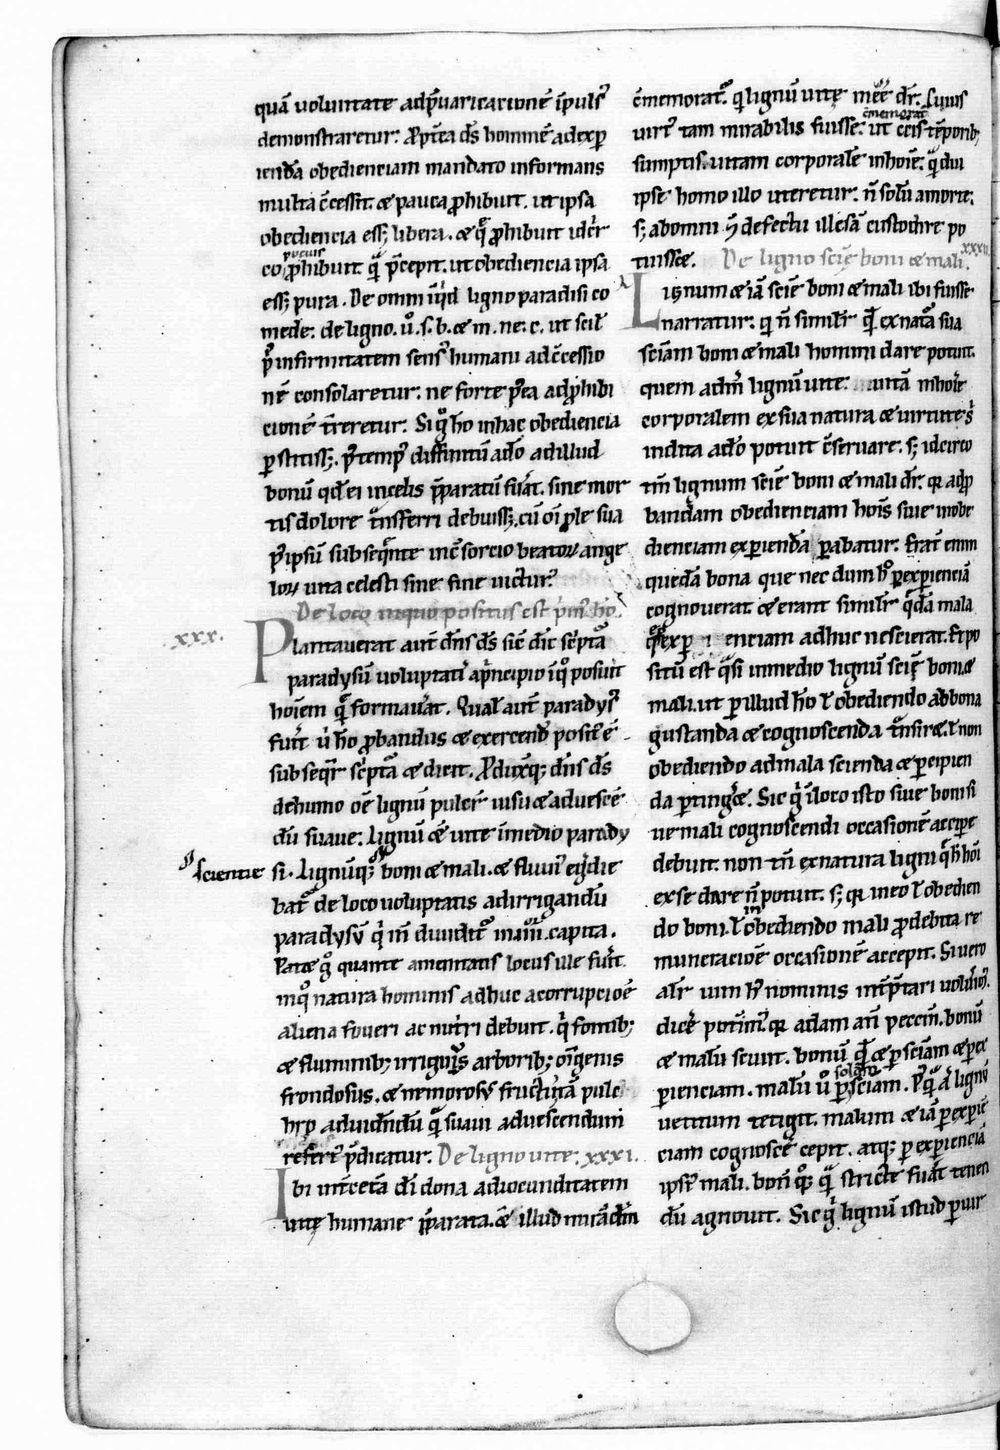 quā voluntate adp̄varicacionē īpulsꝰ
demonstraretur. Propt̄ea dꝰs hominē ad exp
ienda obedienciam mandato informans
multa ꝯcessit. & pauca ꝓhibuit. ut ipsa
obediencia ess& libera. & ꝓhibuit
pocius
ꝓhibuit qͣ p̄cepit. ut obediencia ipsa
ess& pura. De omni inqͥd ligno paradisi co
mede: de ligno. u͛o. s. b. & m. ne. c. ut scil
infirmitatem sensꝰ humani ad ꝯcessio
nē consolaretur. ne forte p̄ea adꝓhibi
cionē t̄reretur. Si g̊ ho in hac obediencia
ꝑstitiss&. p̄ tempꝰ diffinitū ad do ad illud
bonū qd ei in celis p̄paratū fuat. sine mor
tis dolore tͣnsferri debuiss&. cū oī ꝓle sua
ipsū subseqͣnte in ꝯsorcio beatoꝝ ange
loꝝ vita celesti sine fine victurꝰ.
De loco in quo positus est p̄mꝰ ho.
xxx.
Plantaverat aut̄ dn̄s dꝰs sic̄ dic̄ sc̄pta
paradysū voluptatꝭ apͥncipio ī qͦ posuit
hoīem qͣ formauat. Qual̄ aut̄ paradysꝰ
fuit ū ho ꝓbandus & exercendꝰ positꝰ ē
subseqͥr sc̄pta & dicit. Produxq; dn̄s dꝰs
de humo oē lignū pulcr̄ visu & ad vescē
dū suave: lignū &̄ vite ī medio parady
scientie
si. Lignūq; boni & mali. & fluviꝰ eg̊die
bat̄ de loco voluptatis ad irrigandū
paradysū qͥ in̄ diuidit̄ in iiii. capita.
Pat& g̊ quante amenitatis locus ille fuit.
in qͦ natura hominis adhuc a corrupcioē
aliena foveri ac nut̄ri debuit. qͥ fontib;
& fluminib; irriguꝰ arborib; oīgenis
frondosus. & nemorosꝰ
ad vidēdū qͣ suavi ad vescendum
refertꝰ p̄dicatur. De ligno vite. xxxi.
Ibi int̄ cet̄a di dona ad iocunditatem
vite humane p̄parata. &̄ illud mirādū
ꝯmemorat̄. qͥ lignū vite mēe dr̄. Cuius
ꝯmemorat
virtꝰ tam mirabilis fuisse: ut cc̄is tēporib;
sumptis. vitam corporalē in hoīe: qͣ diu
ipse homo illo uteretur. n̄ solū a morte.
s; ab omni &̄ defectu illesā custodire po
tuisse. De ligno scīe boni & mali. xxxii.
Lignum & iā scīe boni & mali ibi fuisse
narratur. q n̄ simil̄r qͣ ex nata sua
sciām boni & mali homini dare potuit.
quem adm̄ lignū vite vitā in hoīe
corporalem ex sua natura & virtute sͥ
indita ad do potuit ꝯseruare. s; idcirco
tm̄ lignum scīe boni & mali dr̄. qꝛ ad ꝓ
bandam obedienciam hoīs sive inobe
dienciam experienda ꝑabatur. Erat enim
quedā bona que nec dum hͦ ꝑ experienciā
cognoverat. & erant simil̄r qͣdā mala
que exp i enciam adhuc nescierat. Et po
situ est qͣsi in medio lignū scīe boni &
mali. ut ꝑ illud ho ł obediendo ad bona
gustanda & cognoscenda tͣnsir&. ł non
obediendo ad mala scienda & ꝑcipien
da ꝑting̊&. Sic g̊ ī loco isto sive boni si
ve mali cognoscendi occasionē accipe
debuit. non tn̄ ex natura ligni qͣ hͦ hoī
ex se dare n̄ potuit. s; qꝛ in eo ł obedien
in
do boni. ł obediendo mali ꝓ debita re
muneracioē occasionē accepit. Si vero
al̄r vim hꝰ nominis int̄p̄tari volūmꝰ.
dicē potimꝰ. qꝛ adam an̄ peccm̄. bonū
& malū scivit. bonū qͣ & ꝑ sciām & ꝑ ex
solam
pienciam. malū u͛o ꝑ sciam. Pqͣ ā lignū
vetitum tetigit. malum & iā ꝑ expiē
ciam cognoscē cepit. atq; ꝑ experienciā
ipsiꝰ mali. bonū qͦ; qͣ stricte fuat tenen
dū agnovit. Sic g̊ lignū istud ꝑ vir